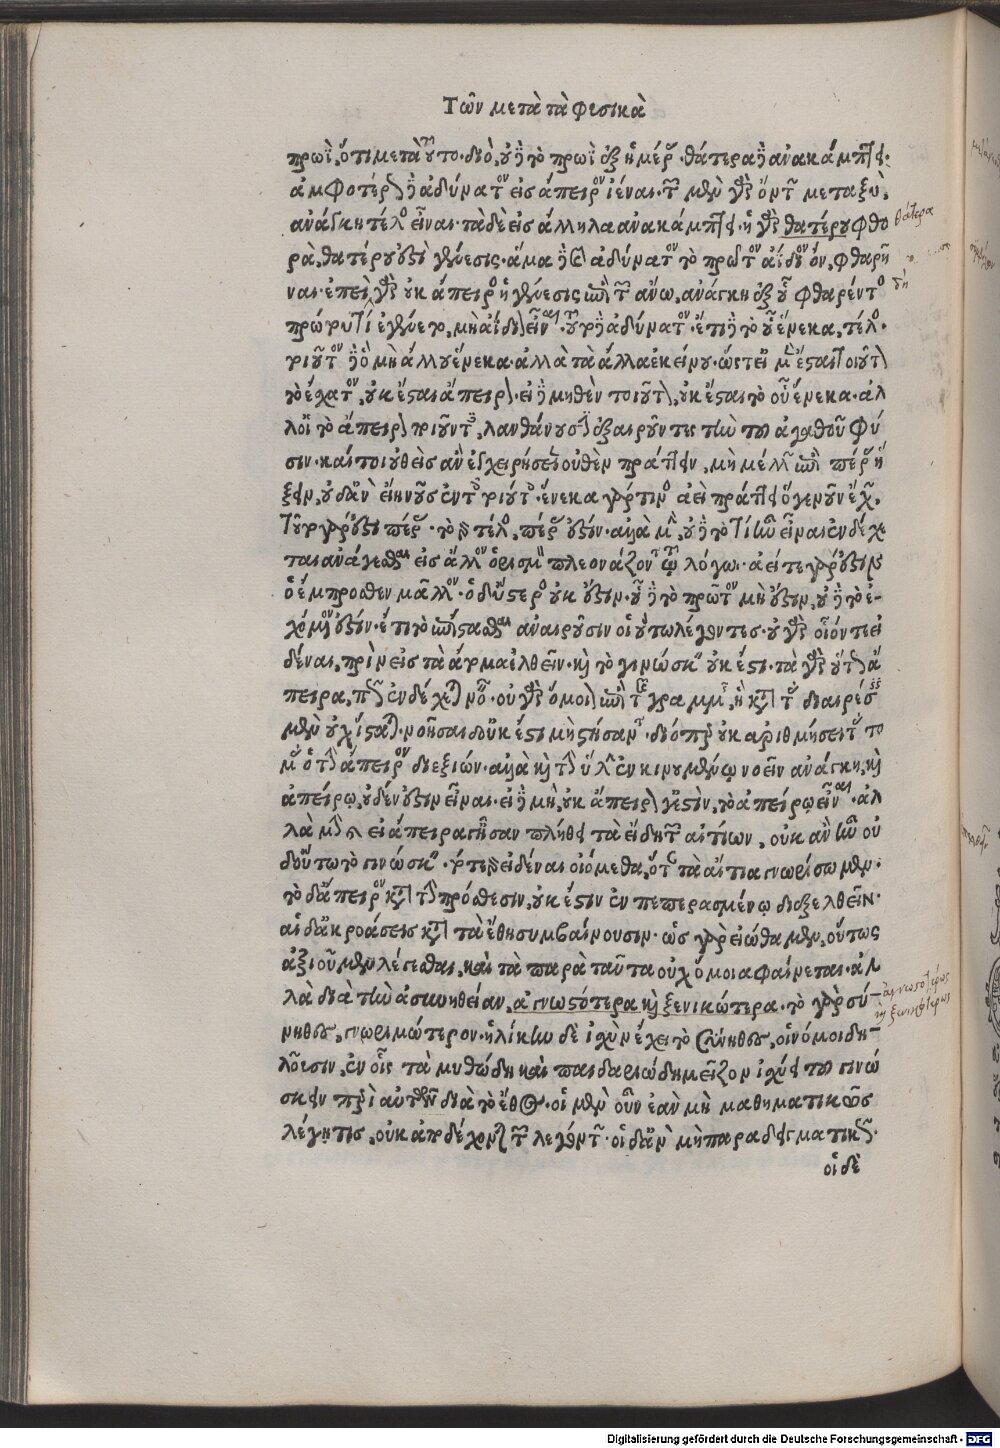 Τῶν μετὰ τὰ φυσικὰ
πρωῒ, ὅτι μετὰ τοῦτο. διὸ, οὐδὲ τὸ πρωῒ ἐξ ἡμέρας. θάτερα δὲ ἀνακάμπτει.
ἀμφοτέρως δὲ ἀδύνατον εἰς ἄπειρον ἰέναι. τῶν μὲν γὰρ ὄντων μεταξὺ,
ἀνάγκη τέλος εἶναι. τὰ δὲ εἰς ἄλληλα ἀνακάμπτει. ἡ γὰρ θατέρου φθο
ρὰ, θατέρου ἐστὶ γένεσις. ἅμα δὲ καὶ ἀδύνατον τὸ πρῶτον ἀΐδιον ὂν, φθαρῆ
ναι. ἐπεὶ γὰρ οὐκ ἄπειρος ἡ γένεσις ἐπὶ τὸ ἄνω, ἀνάγκη ἐξ οὗ φθαρέντος
πρώτου τὶ ἐγένετο, μὴ ἀΐδιον εἶναι. τοῦτο δὲ ἀδύνατον. ἔτι δὲ τὸ οὗ ἕνεκα, τέλος.
τοιοῦτον δὲ ὃ μὴ ἄλλου ἕνεκα. ἀλλὰ τὰ ἄλλα ἐκείνου. ὥστε εἰ μὲν ἔσται τοιοῦτον
τὸ ἔσχατον, οὐκ ἔσται ἄπειρον. εἰ δὲ μηθὲν τοιοῦτον, οὐκ ἔσται τὸ οὗ ἕνεκα. ἀλ
λ᾽ οἱ τὸ ἄπειρον ποιοῦντες, λανθάνουσιν ἐξαιροῦντες τὴν τοῦ ἀγαθοῦ φύ
σιν. καίτοι οὐθεὶς ἂν ἐγχειρήσειεν οὐθὲν πράττειν, μὴ μέλλων ἐπὶ πέρας ἥ
ξειν, οὐδ᾽ ἂν εἴη νοῦς ἐν τοῖς τοιούτοις. ἕνεκα γάρ τινος ἀεὶ πράττει ὅγε νοῦν ἔχων.
τοῦτο γάρ ἐστι πέρας. τὸ γὰρ τέλος, πέρας ἐστίν. ἀλλὰ μὴν, οὐδὲ τὸ τί ἦν εἶναι ἐνδέχε
ται ἀνάγεσθαι εἰς ἄλλον ὁρισμὸν πλεονάζοντα τῷ λόγῳ. ἀεί τε γάρ ἐστιν
ὁ ἔμπροσθεν μᾶλλον. ὁ δ᾽ ὕστερος οὐκ ἔστιν. οὗ δὲ τὸ πρῶτον μὴ ἔστιν, οὐδὲ τὸ ἐ-
χόμενον ἔστιν. ἔτι τὸ ἐπίστασθαι ἀναιροῦσιν οἱ οὕτω λέγοντες. οὐ γὰρ οἷόν τε εἰ
δέναι, πρὶν εἰς τὰ ἄτομα ἐλθεῖν. καὶ τὸ γινώσκειν οὐκ ἔστι. τὰ γὰρ οὕτως ἄ
πειρα, πῶς ἐνδέχεται νοεῖν. οὐ γὰρ ὅμοιον ἐπὶ τῆς γραμμῆς, ἣ κατὰ τὰς διαιρέσεις
μὲν οὐχ ἵσταται. νοῆσαι δ᾽ οὐκ ἔστι μὴ στήσαντα. διόπερ οὐκ ἀριθμήσει τὰς το
μὰς ὁ τὴν ἄπειρον διεξιών. ἀλλὰ καὶ τὴν ὕλην ἐν κινουμένῳ νοεῖν ἀνάγκη, καὶ
ἀπείρῳ, οὐδέν ἐστιν εἶναι. εἰ δὲ μὴ, οὐκ ἄπειρόν γ᾽ ἐστὶν, τὸ ἀπείρῳ εἶναι. ἀλ
λὰ μὴν καὶ εἰ ἄπειρά γ᾽ ἦσαν πλήθει τὰ εἴδη τῶν αἰτίων, οὐκ ἂν ἦν οὐ
δ᾽ οὕτω τὸ γινώσκειν. τότε γὰρ εἰδέναι οἰόμεθα, ὅταν τὰ αἴτια γνωρίσωμεν.
τὸ δ᾽ ἄπειρον κατὰ τὴν πρόσθεσιν, οὐκ ἔστιν ἐν πεπερασμένῳ διεξελθεῖν.
αἱ δ᾽ ἀκροάσεις κατὰ τὰ ἔθη συμβαίνουσιν. ὡς γὰρ εἰώθαμεν, οὕτως
ἀξιοῦμεν λέγεσθαι, καὶ τὰ παρὰ ταῦτα οὐχ ὅμοια φαίνεται. ἀλ
λὰ διὰ τὴν ἀσυνήθειαν, ἀγνωστότερα καὶ ξενικώτερα. τὸ γὰρ σύ-
νηθες, γνωριμώτερον. ἡλίκην δὲ ἰσχὺν ἔχει τὸ σύνηθες, οἱ νόμοι δη-
λοῦσιν, ἐν οἷς τὰ μυθώδη καὶ παιδαριώδη μεῖζον ἰσχύει τοῦ γινώ
σκειν περὶ αὐτῶν διὰ τὸ ἔθος. οἱ μὲν οὖν ἐὰν μὴ μαθηματικῶς
λέγῃ τις, οὐκ ἀποδέχονται τῶν λεγόντων. οἱ δ᾽ ἂν μὴ παραδειγματικῶς.
οἱ δὲ
θάτερα
δὴ
ἀγνωστοτέρως
καὶ ξενικωτέρως
Digitalisierung gefördert durch die Deutsche Forschungsgemeinschaft - DFG